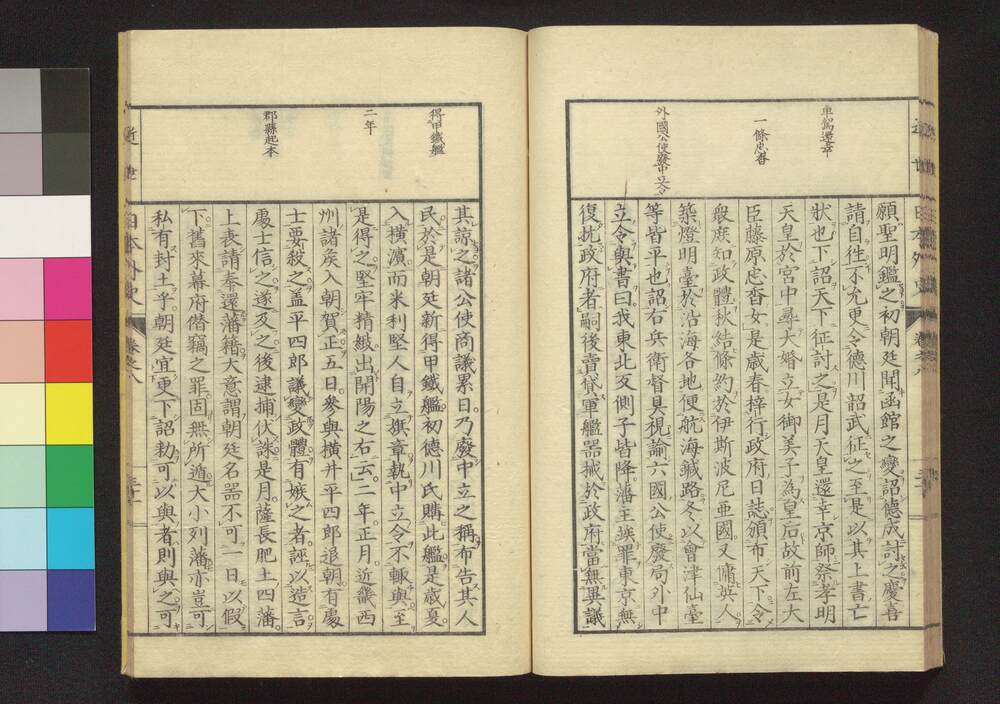 車駕還幸
一條忠香
外國公使廢中立令
願聖明鑑之初朝廷聞函館之變詔德成討之慶喜
請自往不允更令德川詔武征之至是以其上書亡
狀也下詔天下征討之是月天皇還幸京師祭孝明
天皇於宮中尋大婚立女御美子為皇后故前左大
臣藤原忠香女是歲春梓行政府日誌頒布天下令
衆庶知政體秋結條約於伊斯波尼亜國又傭英人
築燈明臺於沿海各地便航海鍼路冬以會津仙臺
等皆平也詔右兵衛督具視諭六國公使發局外中
立令輿書曰我東北交側子皆降藩主竢罪東京無
復抗政府者嗣後賣貸軍艦器械於政府當無異議
得甲鐵艦
二年
郡縣起本
其諒之諸公使商議累日乃廢中立之稱布告其人
民於是朝廷新得甲鐵艦初德川氏購此艦是歲夏
入橫濱而米利堅人自立旗章執中立令不輙與至
是得之堅牢精緻出開陽之右云二年正月近畿西
州諸矦入朝賀正五日參與橫井平四郎退朝有處
士要殺之蓋平四郎議變政體有嫉之者誣以造言
處士信之遂及之後逮捕伏誅是月薩長肥土四藩
上表請奉還藩籍大意謂朝廷名器不可一日以假
下舊來幕府僭竊之罪固無所遁大小列藩亦豈可
私有封土乎朝廷宜更下詔勅可以與者則與之可
近世
日本外史
卷之八